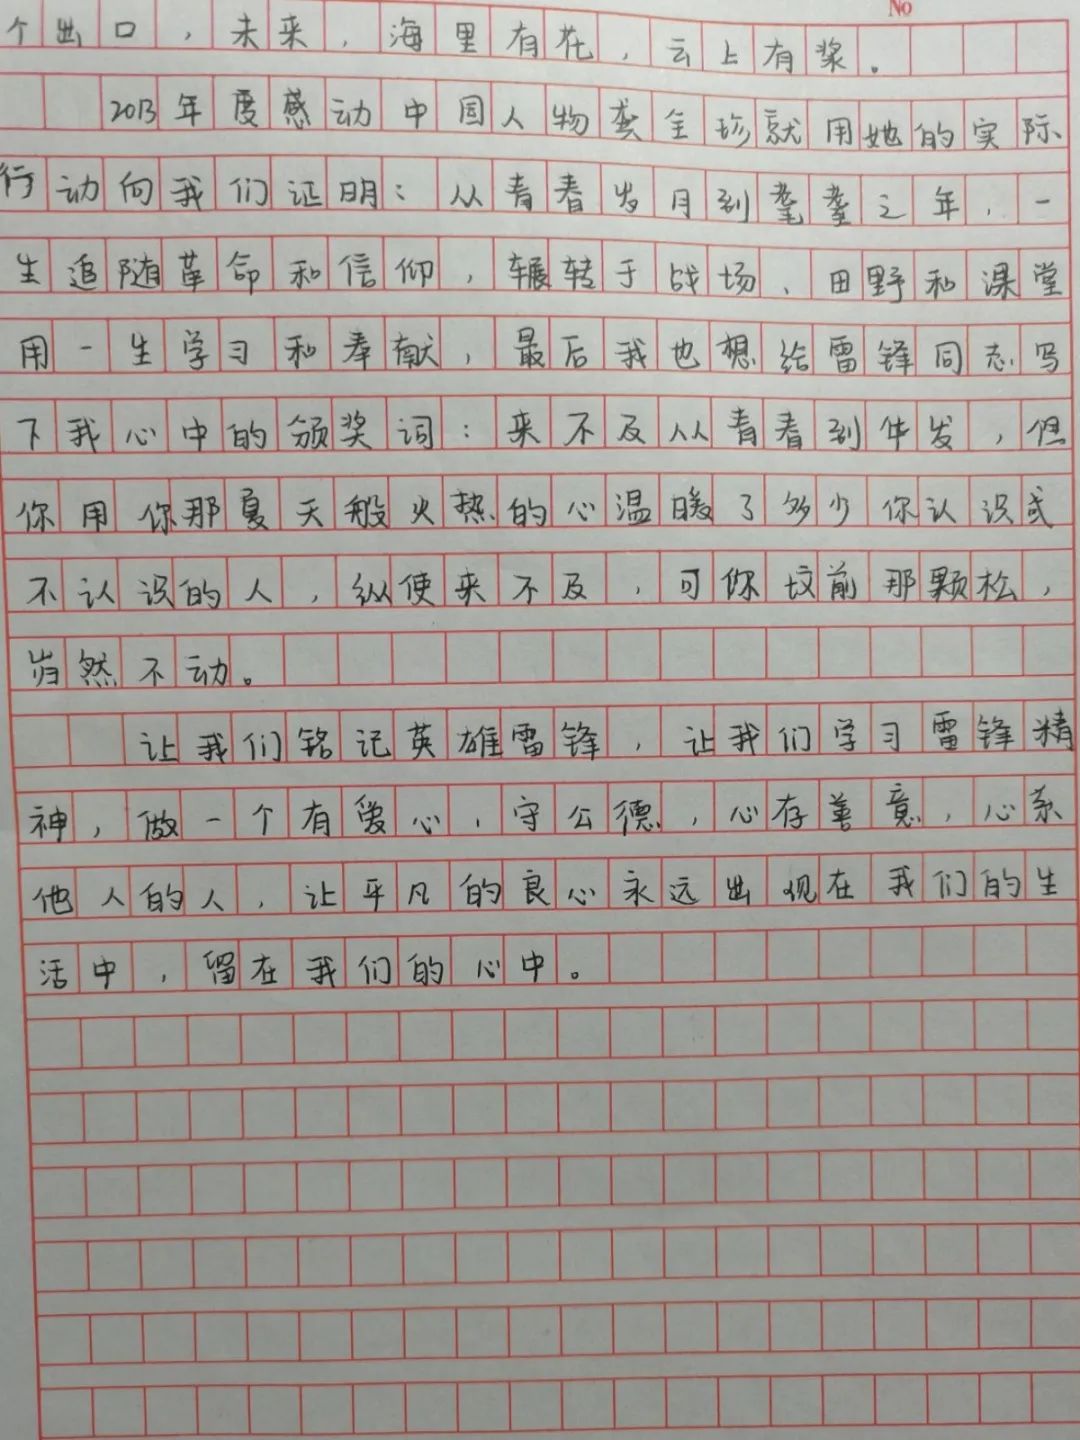 No
个出口，未来，海里有花，云上有桨。
2013年度感动中国人物龚全珍就用她的实际
行动向我们证明：从青春岁月到耄耋之年，一
生追随革命和信仰，辗转于战场、田野和课堂
用一生学习和奉献，最后我也想给雷锋同志写
下我心中的颁奖词：来不及从青春到华发，但
你用你那夏天般火热的心温暖了多少你认识或
不认识的人，纵使来不及，可你坟前那颗松，
岿然不动。
让我们铭记英雄雷锋，让我们学习雷锋精
神，做一个有爱心，守公德，心存善意，心系
他人的人，让平凡的良心永远出现在我们的生
活中，留在我们的心中。